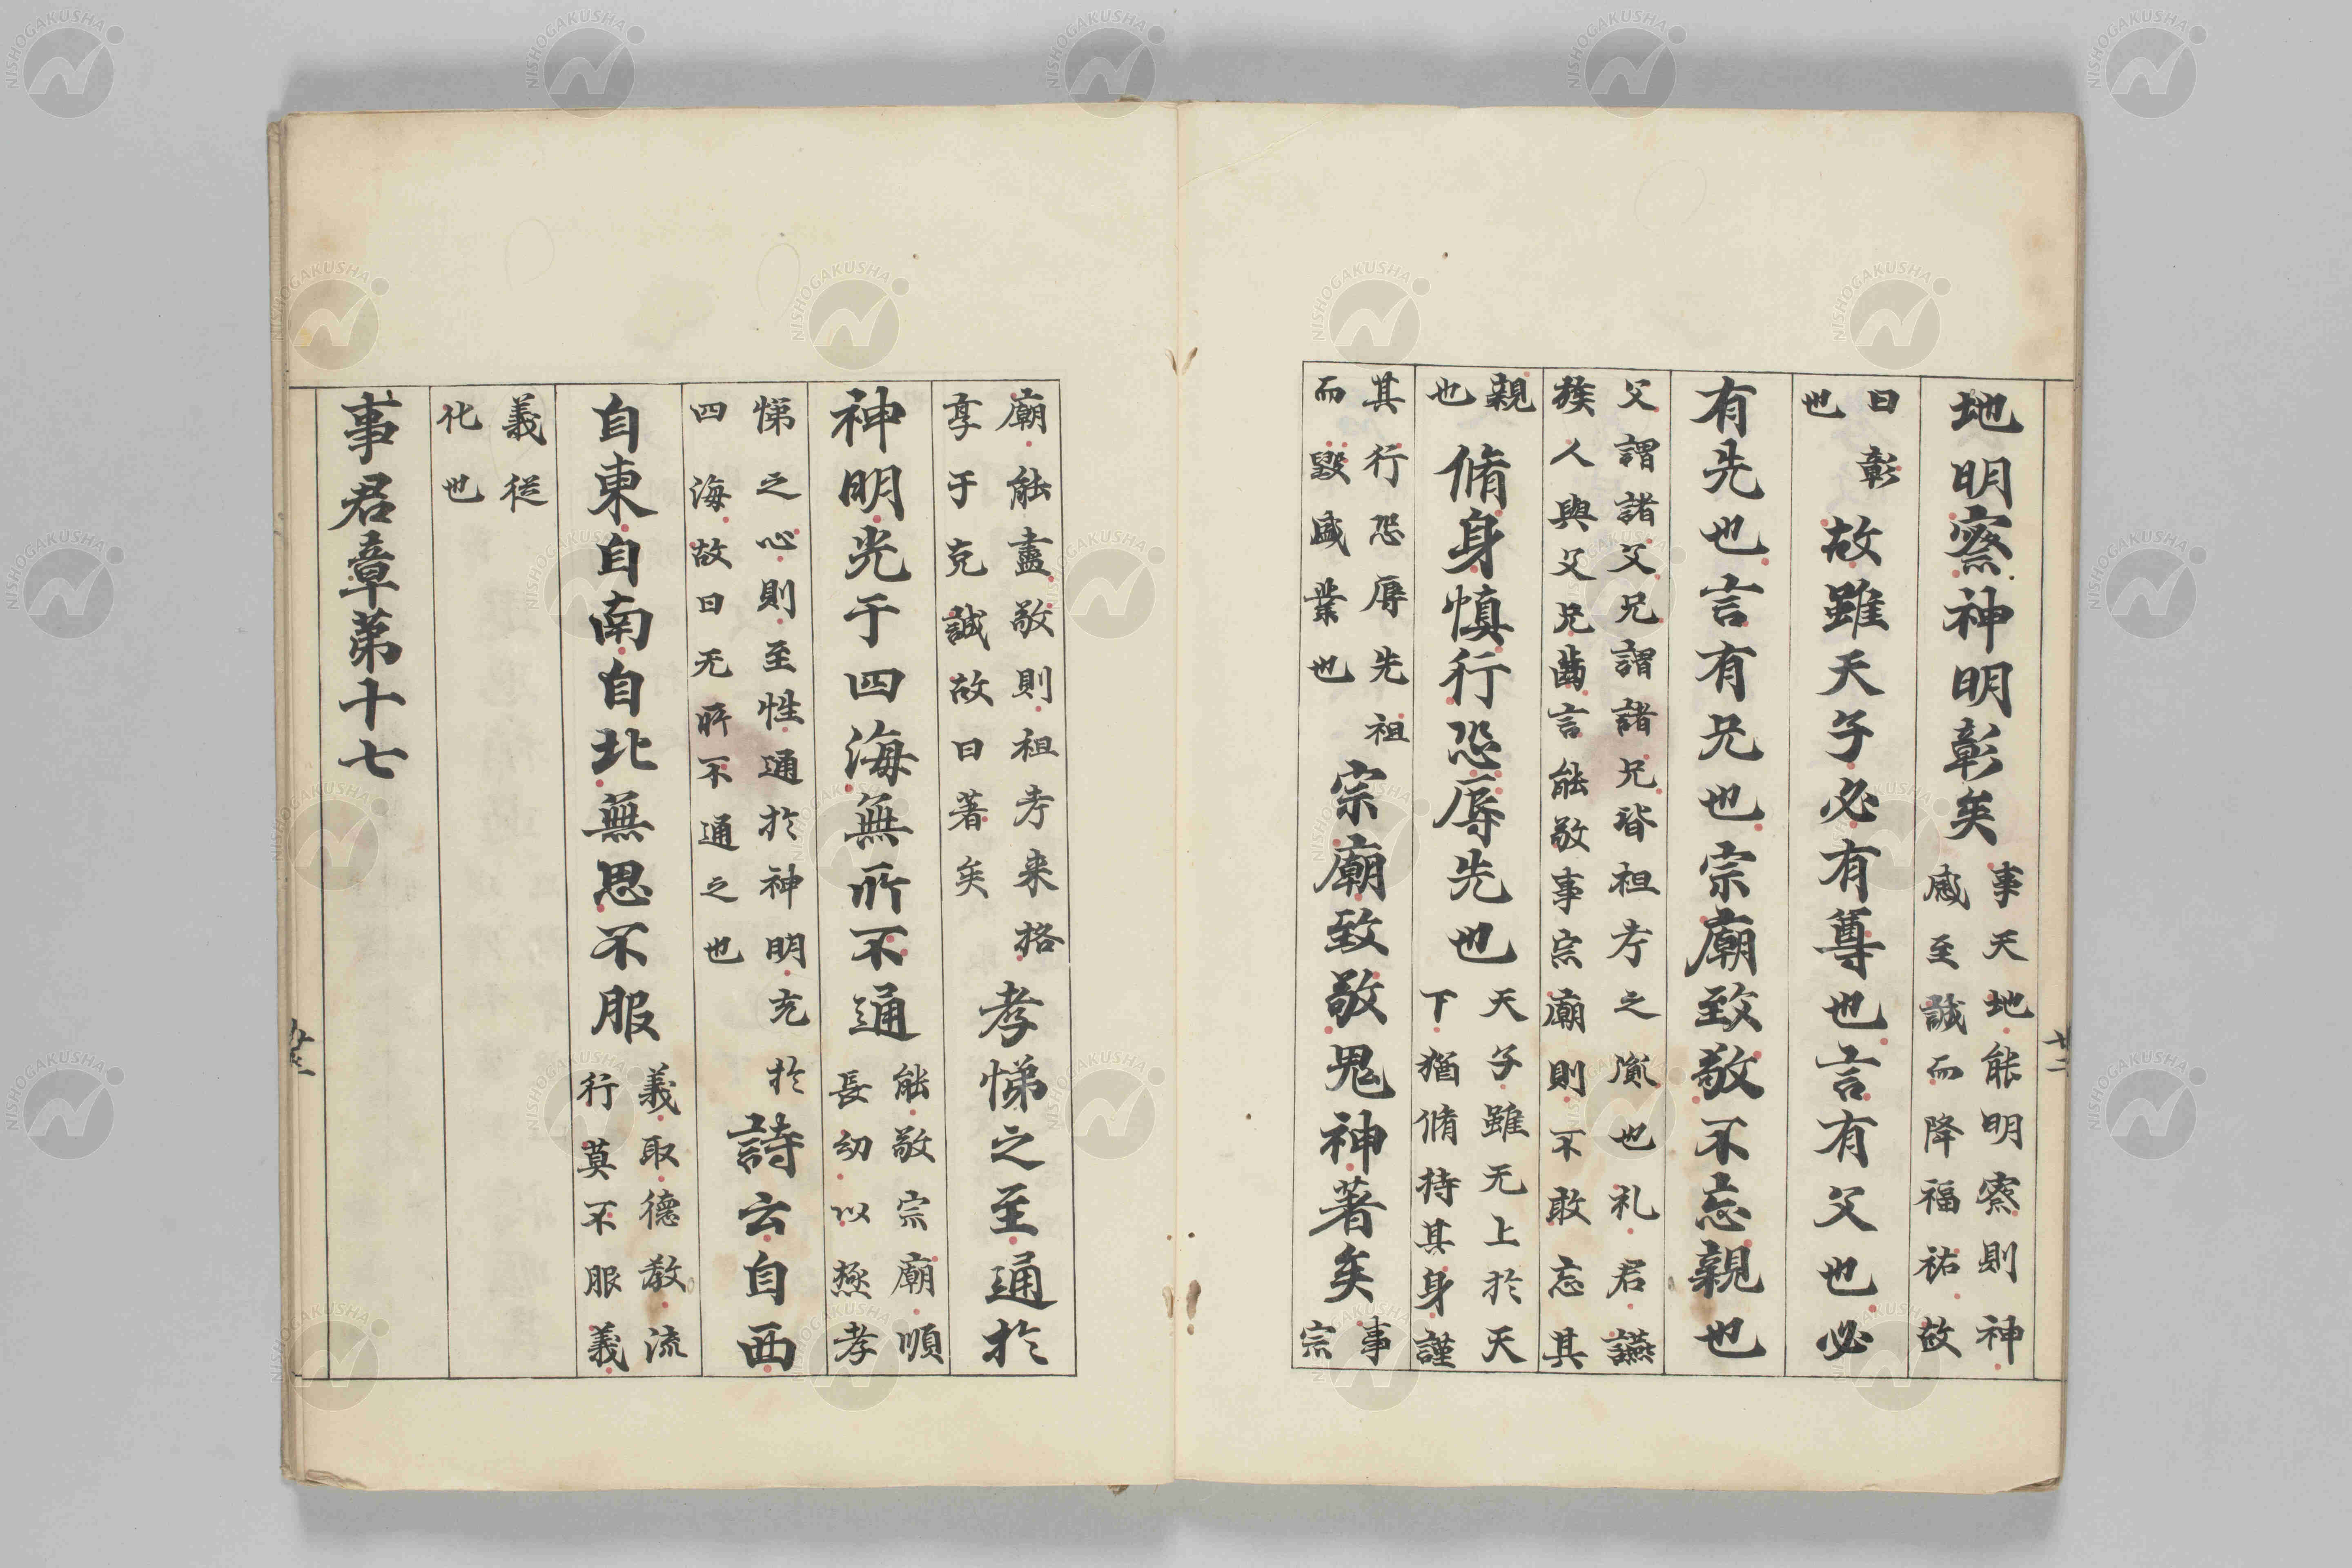 地明察神明彰矣
事天地能明察則神
感至誠而降福祐故
曰彰
也
故雖天子必有尊也言有父也必
有先也言有兄也宗廟致敬不忘親也
父謂諸父兄謂諸兄皆祖考之胤也礼君讌
族人與父兄齒言能敬事宗廟則不敢忘其
親
也
脩身慎行恐辱先也
天子雖无上於天
下猶脩持其身謹
其行恐辱先祖
而毀盛業也
宗廟致敬鬼神著矣
事
宗
廟能盡敬則祖考来格
享于克誠故曰著矣
孝悌之至通於
神明光于四海無所不通
能敬宗廟順
長幼以極孝
悌之心則至性通於神明充於
四海故曰无所不通之也
詩云自西
自東自南自北無思不服
義取德教流
行莫不服義
義從
化也
事君章第十七
NISHOGAKUSHA